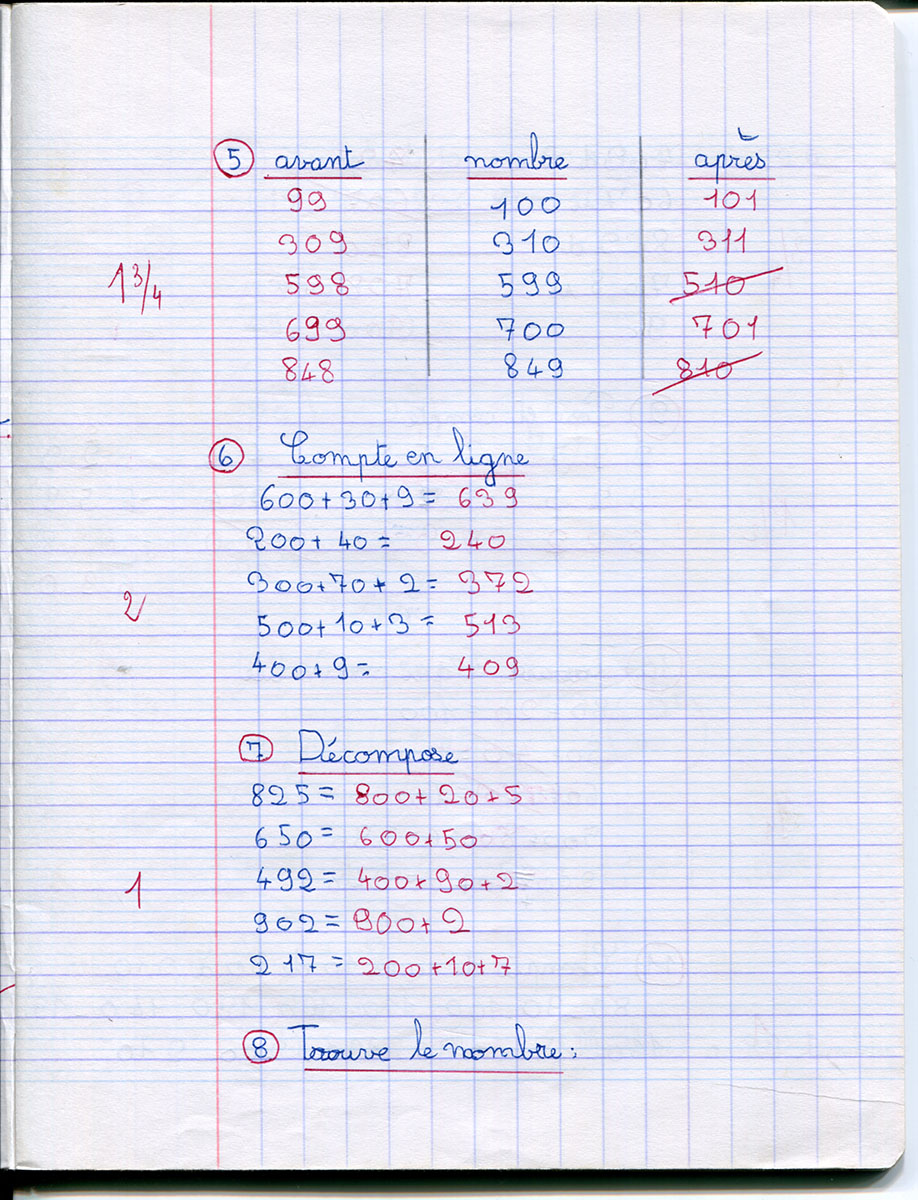 5 avant nombre après
99 100 101
309 310 311
1 3/4
598 599 510
699 700 701
848 849 810
6 Compte en ligne
600+30+9= 639
200+40= 240
300+70+2= 372
2
500+10+3= 513
400+9= 409
7 Décompose
825= 800+20+5
650= 600+50
1
492= 400+90+2
902= 900+2
217= 200+10+7
8 Trouve le nombre: